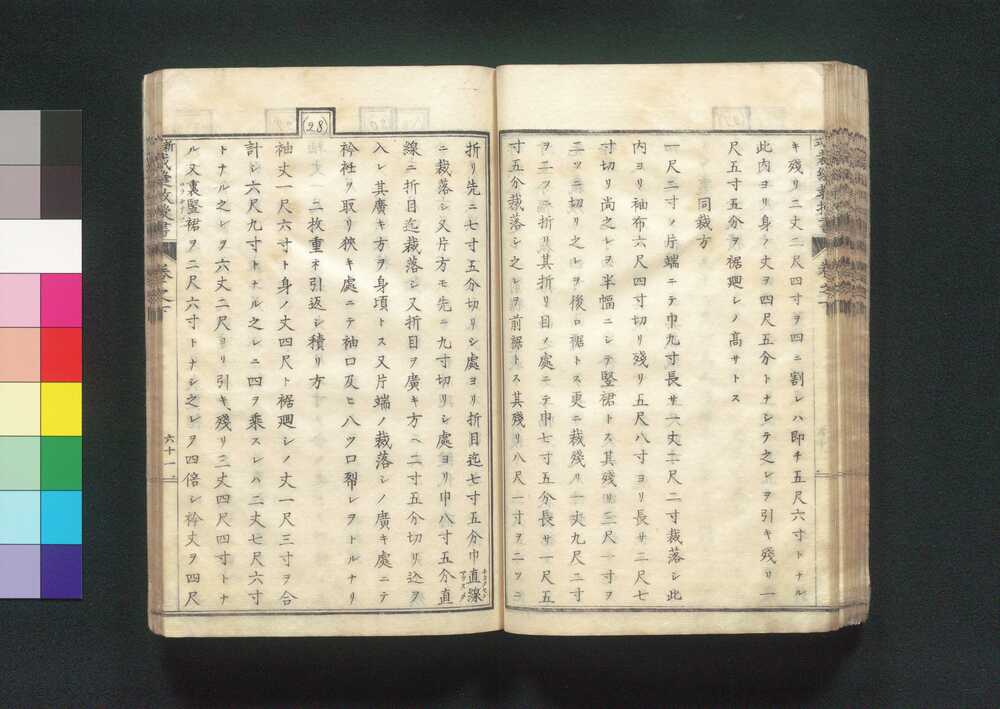 キ殘リ二丈二尺四寸ヲ四ニ割レハ即チ五尺六寸トナル
此内ヨリ身ノ丈ヲ四尺五分トナシテ之レヲ引キ殘リ一
尺五寸五分ヲ裾廻シノ高サトス
同裁方
一尺二寸ノ片端ニテ巾九寸長サ一丈二尺二寸裁落シ此
内ヨリ袖布六尺四寸切リ殘リ五尺八寸ヨリ長サ二尺七
寸切リ尚之レヲ半幅ニシテ竪裙トス其殘リ三尺一寸ヲ
二ツニ切リ之レヲ後ロ裾トス更ニ裁殘リ一丈九尺二寸
ヲ二ツニ折リ其折リ目ノ處ニテ巾七寸五分長サ一尺五
寸五分裁落シ之レヲ前裾トス其殘リ八尺一寸ヲ二ツニ
(28)
折リ先ニ七寸五分切リシ處ヨリ折目迄七寸五分巾直線
ニ裁落シ又片方モ先ニ九寸切リシ處ヨリ巾八寸五分直
線ニ折目迄裁落シ又折目ヲ廣キ方ヘ二寸五分切リ込ヲ
入レ其廣キ方ヲ身頃トス又片端ノ裁落シノ廣キ處ニテ
衿衽ヲ取リ狹キ處ニテ袖口及ヒ八ツロ裂レヲトルナリ
袖丈一ツ二枚重ネ引返シ積リ方
袖丈一尺六寸ト身ノ丈四尺ト裾廻シノ丈一尺三寸ヲ合
計シ六尺九寸トナル之レニ四ヲ乘スレハ二丈七尺六寸
トナル之レヲ六丈二尺ヨリ引キ殘リ三丈四尺四寸トナ
ル又裏竪裙ヲ二尺六寸トナシ之レヲ四倍シ衿丈ヲ四尺
卷之下
六十一